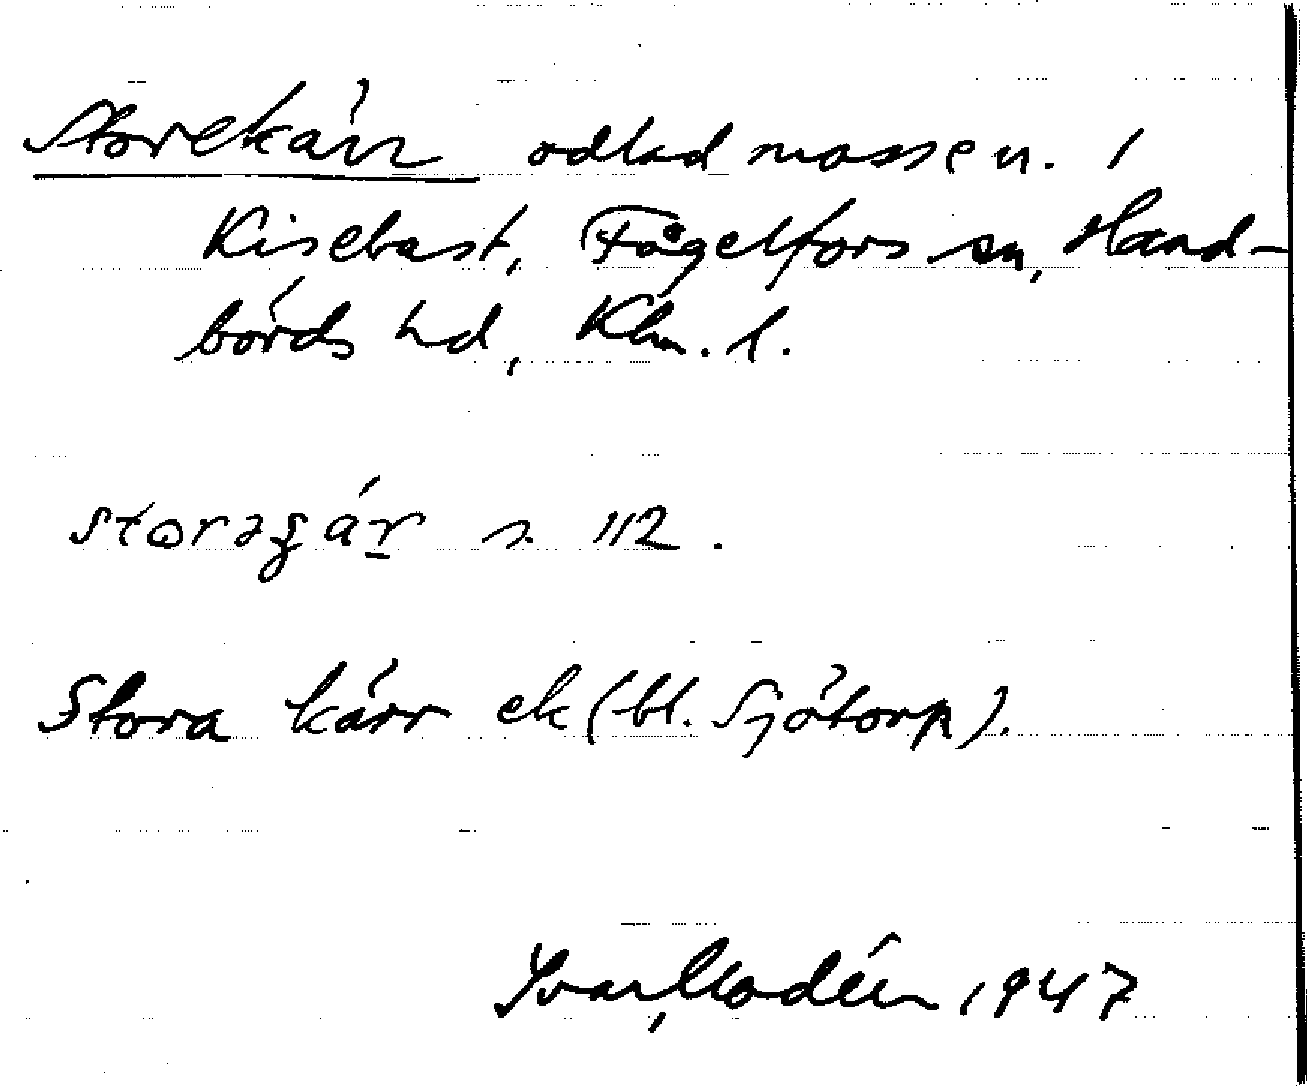 Storekärr odlad mosse n. /
Kisebast, Fågelfors sn, Hand-
börds hd, Klm. l.
storǝgär s. 112.
Stora kärr ek (bl. Sjötorp).
Ivar Modéer 1947